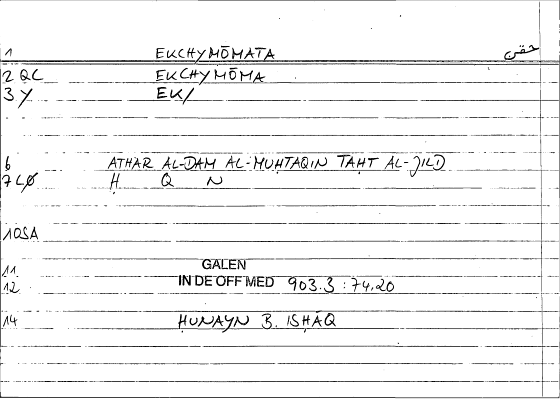 1 EKCHYMŌMATA حقن
2 QC EKCHYMŌMA
3 Y EK/
6 ATHAR AL-DAM AL-MUḤTAQIN TAḤT AL-JILD
7 LØ Ḥ Q N
10 SA
11 GALEN
12 IN DE OFF MED 903.3 : 74.20
14 ḤUNAYN B. ISḤĀQ